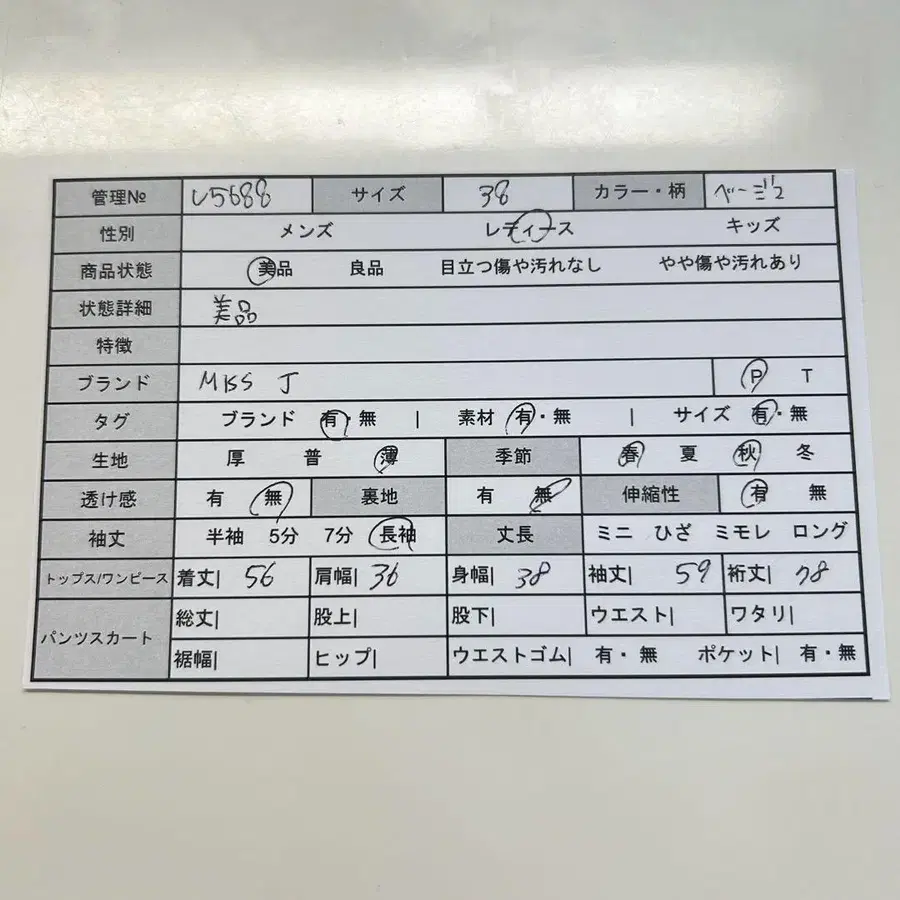 管理№ L5688 サイズ 38 カラー・柄 ベージュ
性別 メンズ レディース キッズ
商品状態 美品 良品 目立つ傷や汚れなし やや傷や汚れあり
状態詳細 美品
特徴
ブランド MISS J P T
タグ ブランド 有・無 | 素材 有・無 | サイズ 有・無
生地 厚 普 薄 季節 春 夏 秋 冬
透け感 有 無 裏地 有 無 伸縮性 有 無
袖丈 半袖 5分 7分 長袖 丈長 ミニ ひざ ミモレ ロング
トップス/ワンピース 着丈| 56 肩幅| 36 身幅| 38 袖丈| 59 裄丈| 78
パンツスカート 総丈| 股上| 股下| ウエスト| ワタリ|
裾幅| ヒップ| ウエストゴム| 有・無 ポケット| 有・無